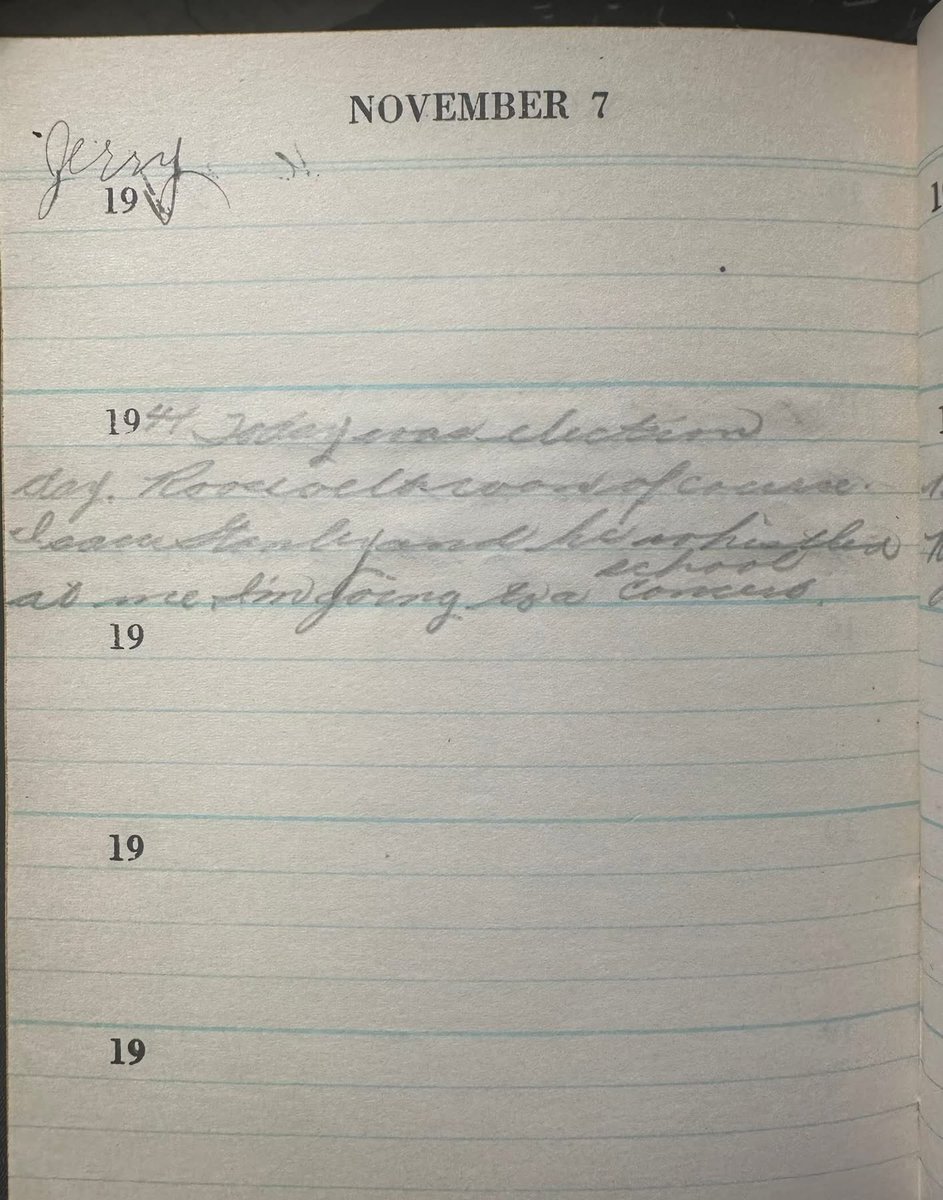 NOVEMBER 7
Jerry
19
1944 Today was election
day. Roosevelt won of course.
I saw Stanley and he whistled
school
at me. I'm going to a concert.
19
19
19